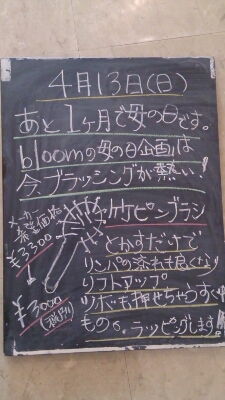 4月13日(日)
あと1ヶ月で母の日です。
bloomの母の日企画は
今、ブラッシングが熱い!
メーカー
希望価格
¥3300
↓
¥3000
(税別)
ピンブラシ
とかすだけで
リンパの流れも良くなり
リフトアップ
ツボも押せちゃうすぐ
もの。ラッピングします。